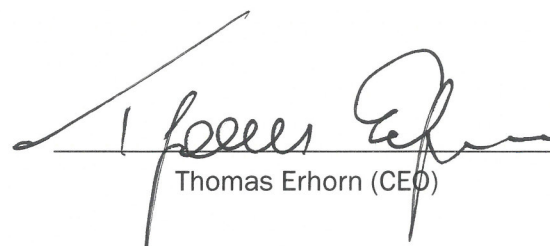 Thomas Erhorn
Thomas Erhorn (CEO)